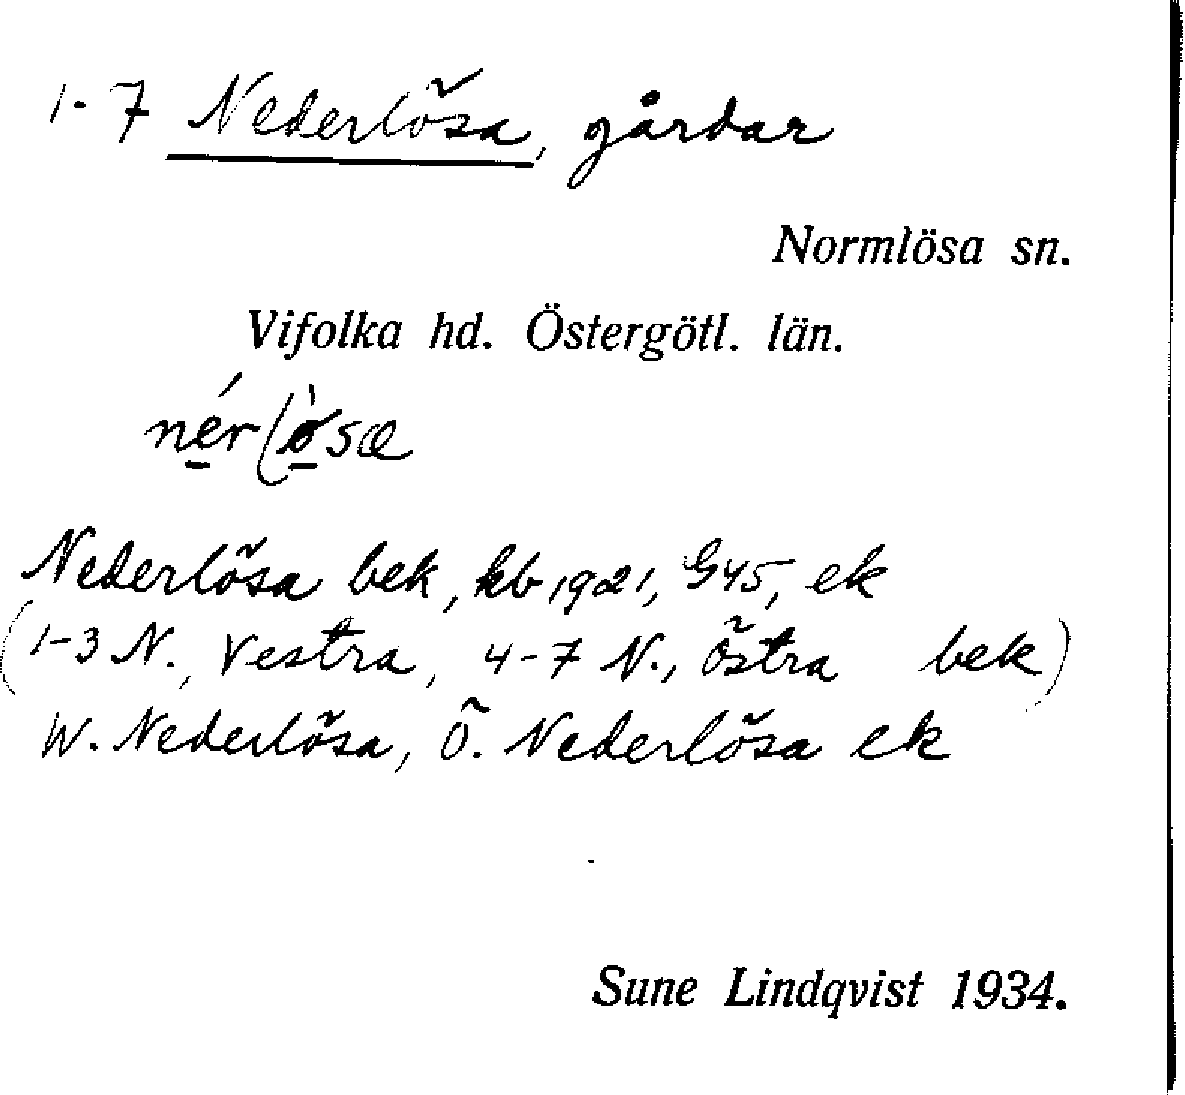 1-7 Nederlösa, gårdar
Normlösa sn.
Vifolka hd. Östergötl. län.
nérlø̀sæ
Nederlösa bek, kb 1921, G45, ek
(1-3 N., Vestra, 4-7 N., Östra bek)
W. Nederlösa, Ö. Nederlösa ek
Sune Lindqvist 1934.